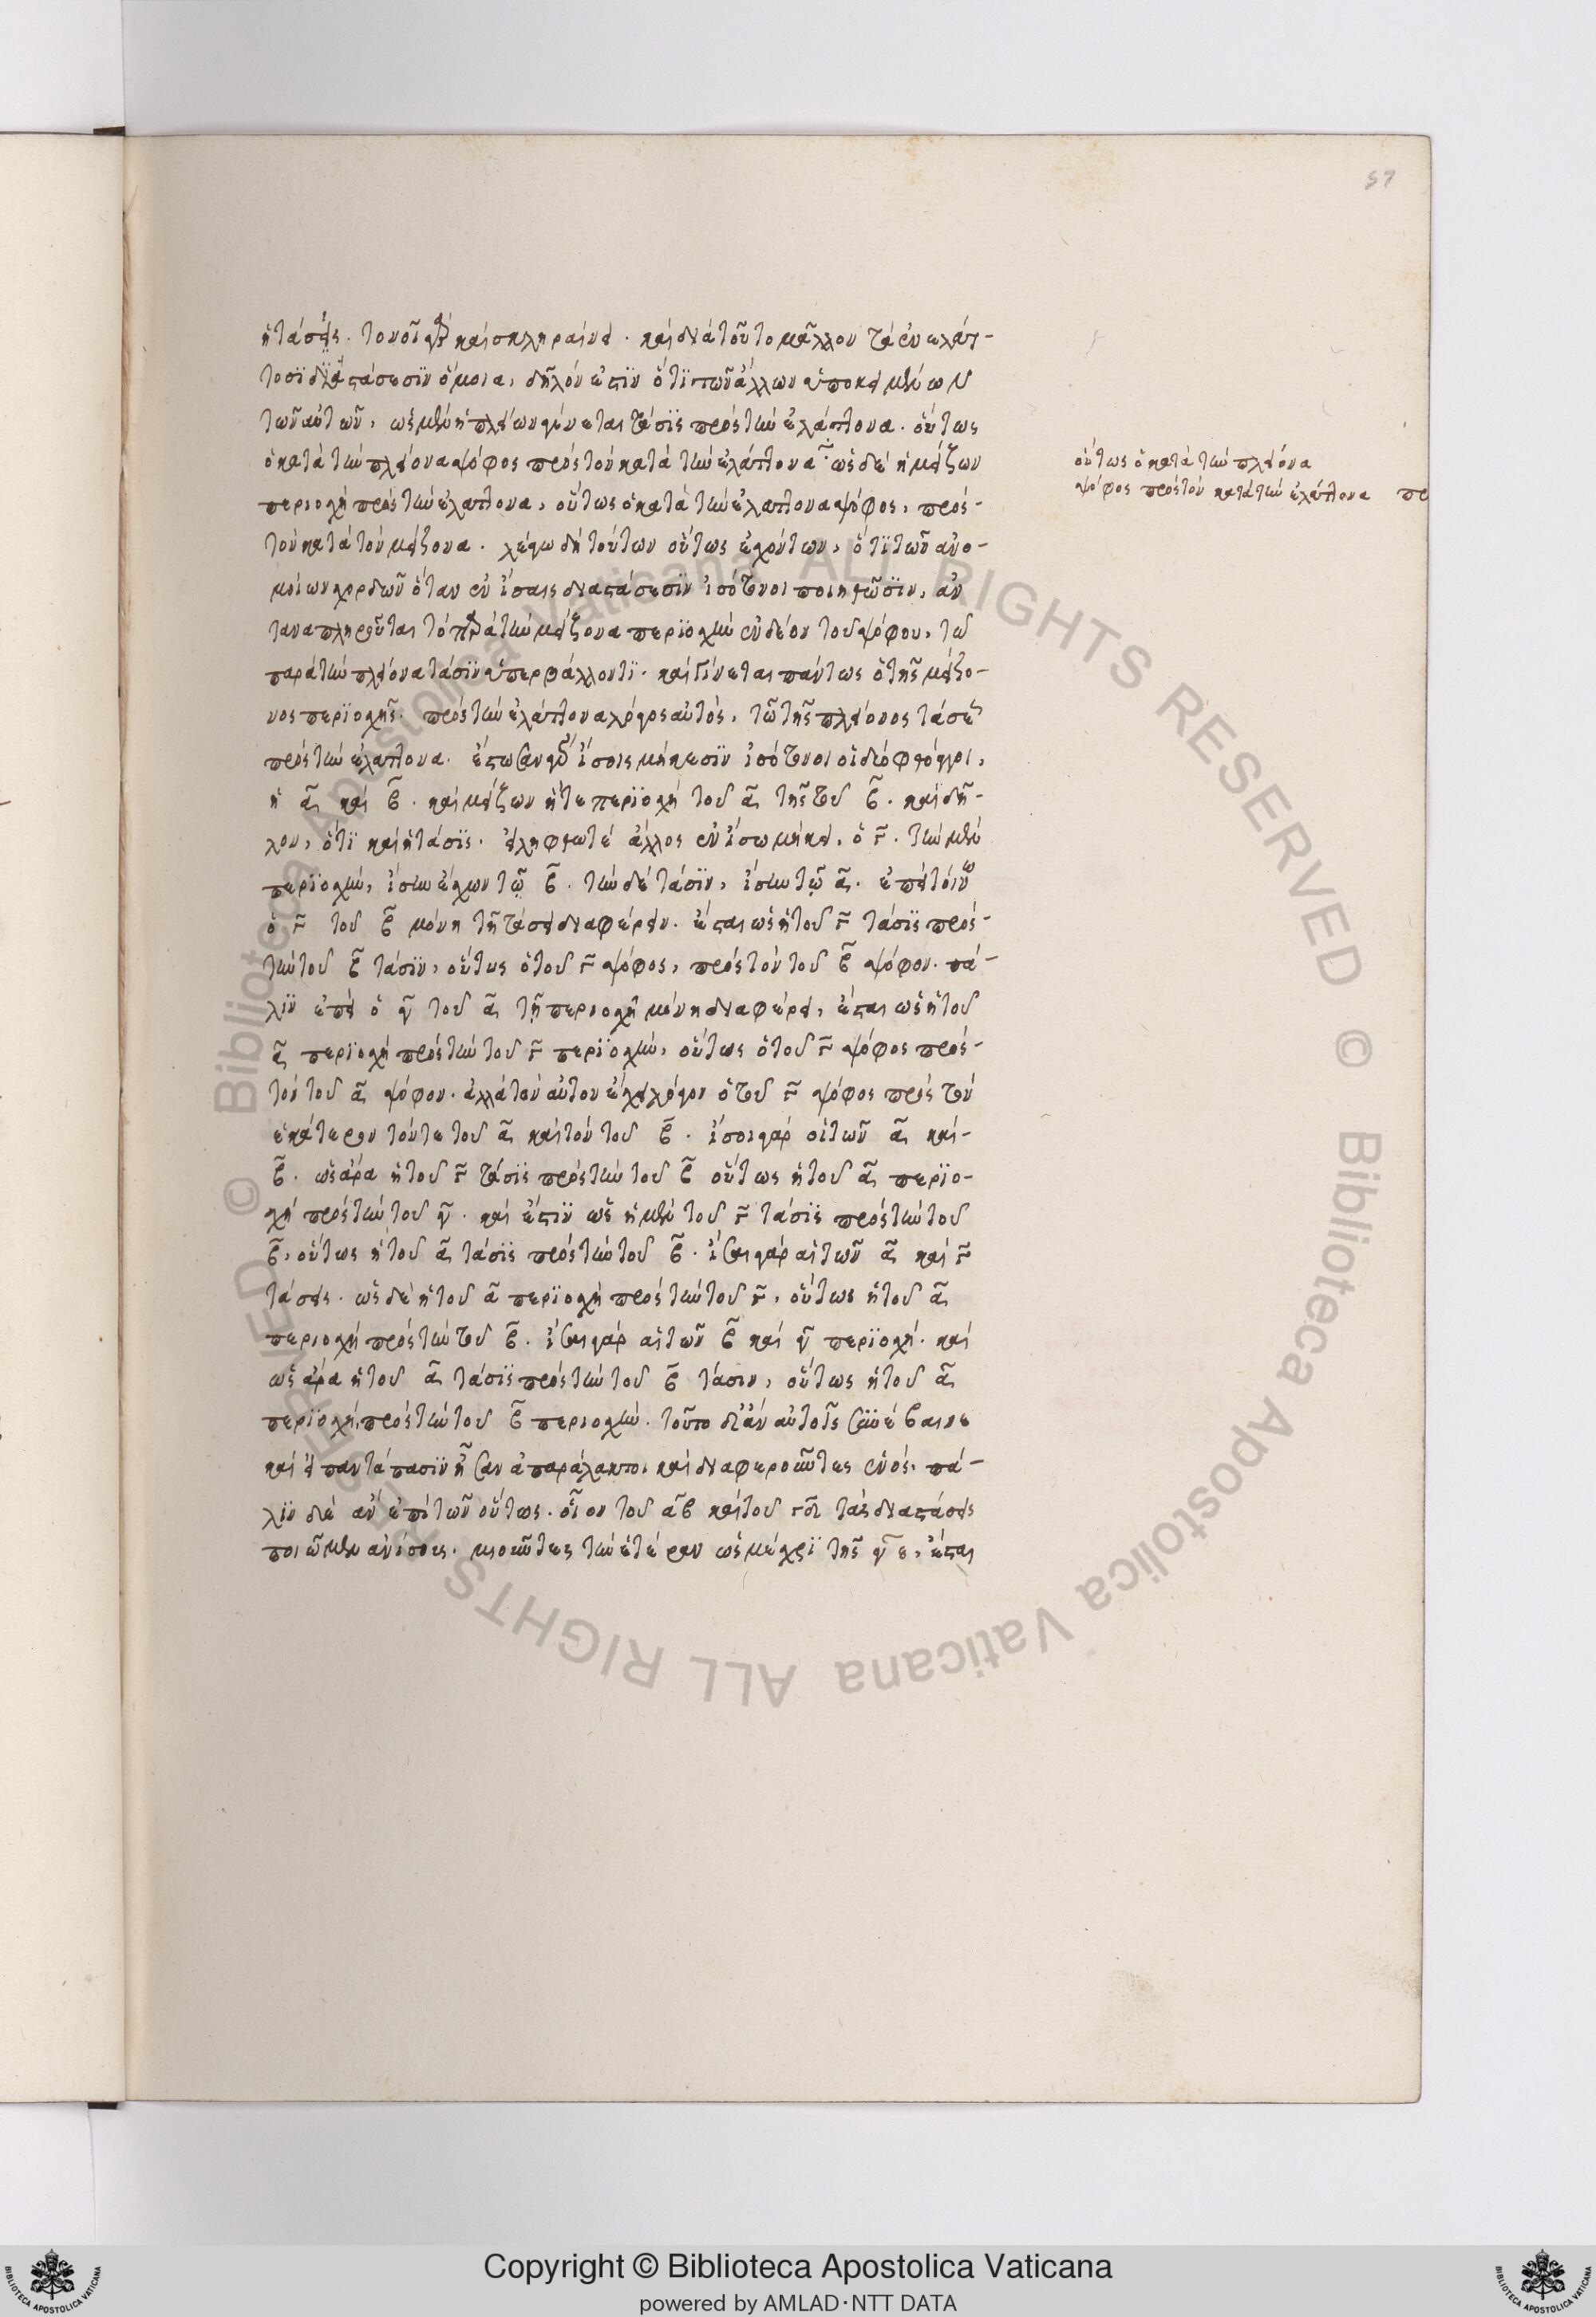 57
ἡ τάσις. τονοῖ γὰρ καὶ σκληραίνει. καὶ διὰ τοῦτο μᾶλλον τὰ ἐν ἐλάτ-
τοσϊ διαστάσεσϊν ὅμοια, δῆλόν ἐστϊν ὅτϊ τῶν ἄλλων ὑποκειμένων
τῶν αὐτῶν, ὡς μὲν ἡ πλείων γίνεται τάσϊς πρὸς τὴν ἐλάττονα. οὕτως
ὁ κατὰ τὴν πλείονα ψόφος πρὸς τὸν κατὰ τὴν ἐλάττονα ὡς δὲ ἡ μείζων
περιοχὴ πρὸς τὴν ἐλάττονα, οὕτως ὁ κατὰ τὴν ἐλάττονα ψόφος, πρὸς
τὸν κατὰ τὸν μείζονα. λέγω δὴ τούτων οὕτως ἐχόντων, ὅτϊ τῶν ἀνο-
μοίων χορδῶν ὅταν ἐν ἴσαις διαστάσεσϊν ἰσότονοι ποιηθῶσϊν, ἀν
ταναπληροῦται τὸ παρὰ τὴν μείζονα περϊοχὴν ἐνδέον τοῦ ψόφου, τῶ
παρὰ τὴν πλείονα τάσϊν ὑπερβάλλοντϊ. καὶ γίνεται πάντως ὁ τῆς μείζο-
νος περϊοχῆς πρὸς τὴν ἐλάττονα λόγος αὐτὸς, τῶ τῆς πλείονος τάσεως
πρὸς τὴν ἐλάττονα. ἔστωσαν γὰρ ἴσοις μήκεσϊν ἰσότονοι οἱ δύο φθόγγοι,
ἡ α καὶ β. καὶ μείζων ἥ τε περϊοχὴ τοῦ α τῆς τοῦ β. καὶ δῆ-
λον, ὅτϊ καὶ ἡ τάσϊς. εἰλήφθω τέ ἄλλος ἐν ἴσω μήκει, ὁ γ. τὴν μὲν
περϊοχὴν, ἴσην ἔχων τῷ β. τὴν δὲ τάσϊν, ἴσην τῷ α. ἐπεὶ τοίνυν
ὁ γ τοῦ β μόνη τῆ τάσει διαφέρειν. ἔσται ὡς ἡ τοῦ γ τάσϊς πρὸς
τὴν τοῦ β τάσϊν, οὕτως ὁ τοῦ γ ψόφος, πρὸς τὸν τοῦ β ψόφον. πά-
λϊν ἐπεὶ ὁ γ τοῦ α τῆ περιοχῆ μόνη διαφέρει, ἔσται ὡς ἡ τοῦ
α περϊοχὴ πρὸς τὴν τοῦ γ περϊοχὴν, οὕτως ὁ τοῦ γ ψόφος πρὸς
τὸν τοῦ α ψόφον. ἀλλὰ τὸν αὐτὸν ἔχει λόγον ὁ τοῦ γ ψόφος πρὸς τὸν
ἑκάτερον τόν τε τοῦ α καὶ τὸν τοῦ β. ἴσοι γὰρ οἱ τῶν α καὶ
β. ὡς ἄρα ἡ τοῦ γ τάσϊς πρὸς τὴν τοῦ β οὕτως ἡ τοῦ α περϊο-
χὴ πρὸς τὴν τοῦ γ. καὶ ἔστϊν ὡς ἡ μὲν τοῦ γ τάσϊς πρὸς τὴν τοῦ
β, οὕτως ἡ τοῦ α τάσϊς πρὸς τὴν τοῦ β. ἴσαι γὰρ αἱ τῶν α καὶ γ
τάσεις. ὡς δὲ ἡ τοῦ α περϊοχὴ πρὸς τὴν τοῦ γ, οὕτως ἡ τοῦ α
περιοχὴ πρὸς τὴν τοῦ β. ἴσαι γὰρ αἱ τῶν β καὶ γ περϊοχή. καὶ
ὡς ἄρα ἡ τοῦ α τάσϊς πρὸς τὴν τοῦ β τάσιν, οὕτως ἡ τοῦ α
περϊοχὴ, πρὸς τὴν τοῦ β περιοχὴν. τοῦτο δἂν αὐτοῖς συνέβαινε
καὶ εἰ παντάπασϊν ἦσαν ἀπαράλακτοι καὶ διαφεροῦντες ἑνός. πά-
λϊν δὲ ἂν ἐπὶ τῶν οὕτως. οἷον τοῦ αβ καὶ τοῦ γδ τὰς διαστάσεις
ποιῶμεν ἀνίσους. μειοῦντες τὴν ἑτέραν ὡς μέχρϊ τῆς γε, ἔσται
οὕτως ὁ κατὰ τὴν πλείονα
ψόφος πρὸς τὸν κατὰ τὴν ἐλάττονα
© Biblioteca Apostolica Vaticana ALL RIGHTS RESERVED © Biblioteca Apostolica Vaticana ALL RIGHTS RESERVED
BIBLIOTECA APOSTOLICA VATICANA
Copyright © Biblioteca Apostolica Vaticana
powered by AMLAD·NTT DATA
BIBLIOTECA APOSTOLICA VATICANA